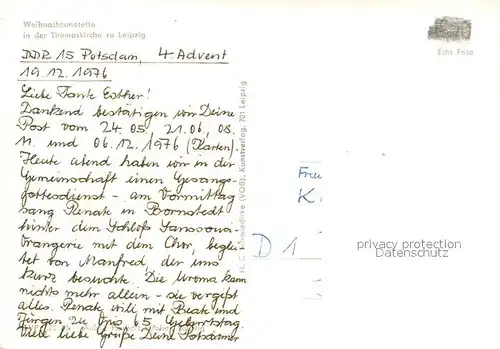 Weihnachtsmotette
in der Thomaskirche zu Leipzig
Edit Polo
DDR 15 Potsdam, 4. Advent
19.12.1976
Liebe Tante Esther!
Dankend bestätigen wir Deine
Post vom 24.05., 21.06, 08.
11. und 06.12.1976 (Karten).
Heute abend haben wir in der
Gemeinschaft einen Gesangs-
gottesdienst - am Vormittag
sang Renate in Bornstedt
hinter dem Schloß Sanssouci
Orangerie mit dem Chor, beglei-
tet von Manfred, der uns
kurz besuchte. Die Uroma kann
nichts mehr allein - sie vergißt
alles. Renate will mit Beate und
Jürgen zu Opis 65. Geburtstag.
Viele liebe Grüße Deine Potsdamer
(VOB), Kunstverlag, 701 Leipzig
Frau
K.
D 1
privacy protection
Datenschutz